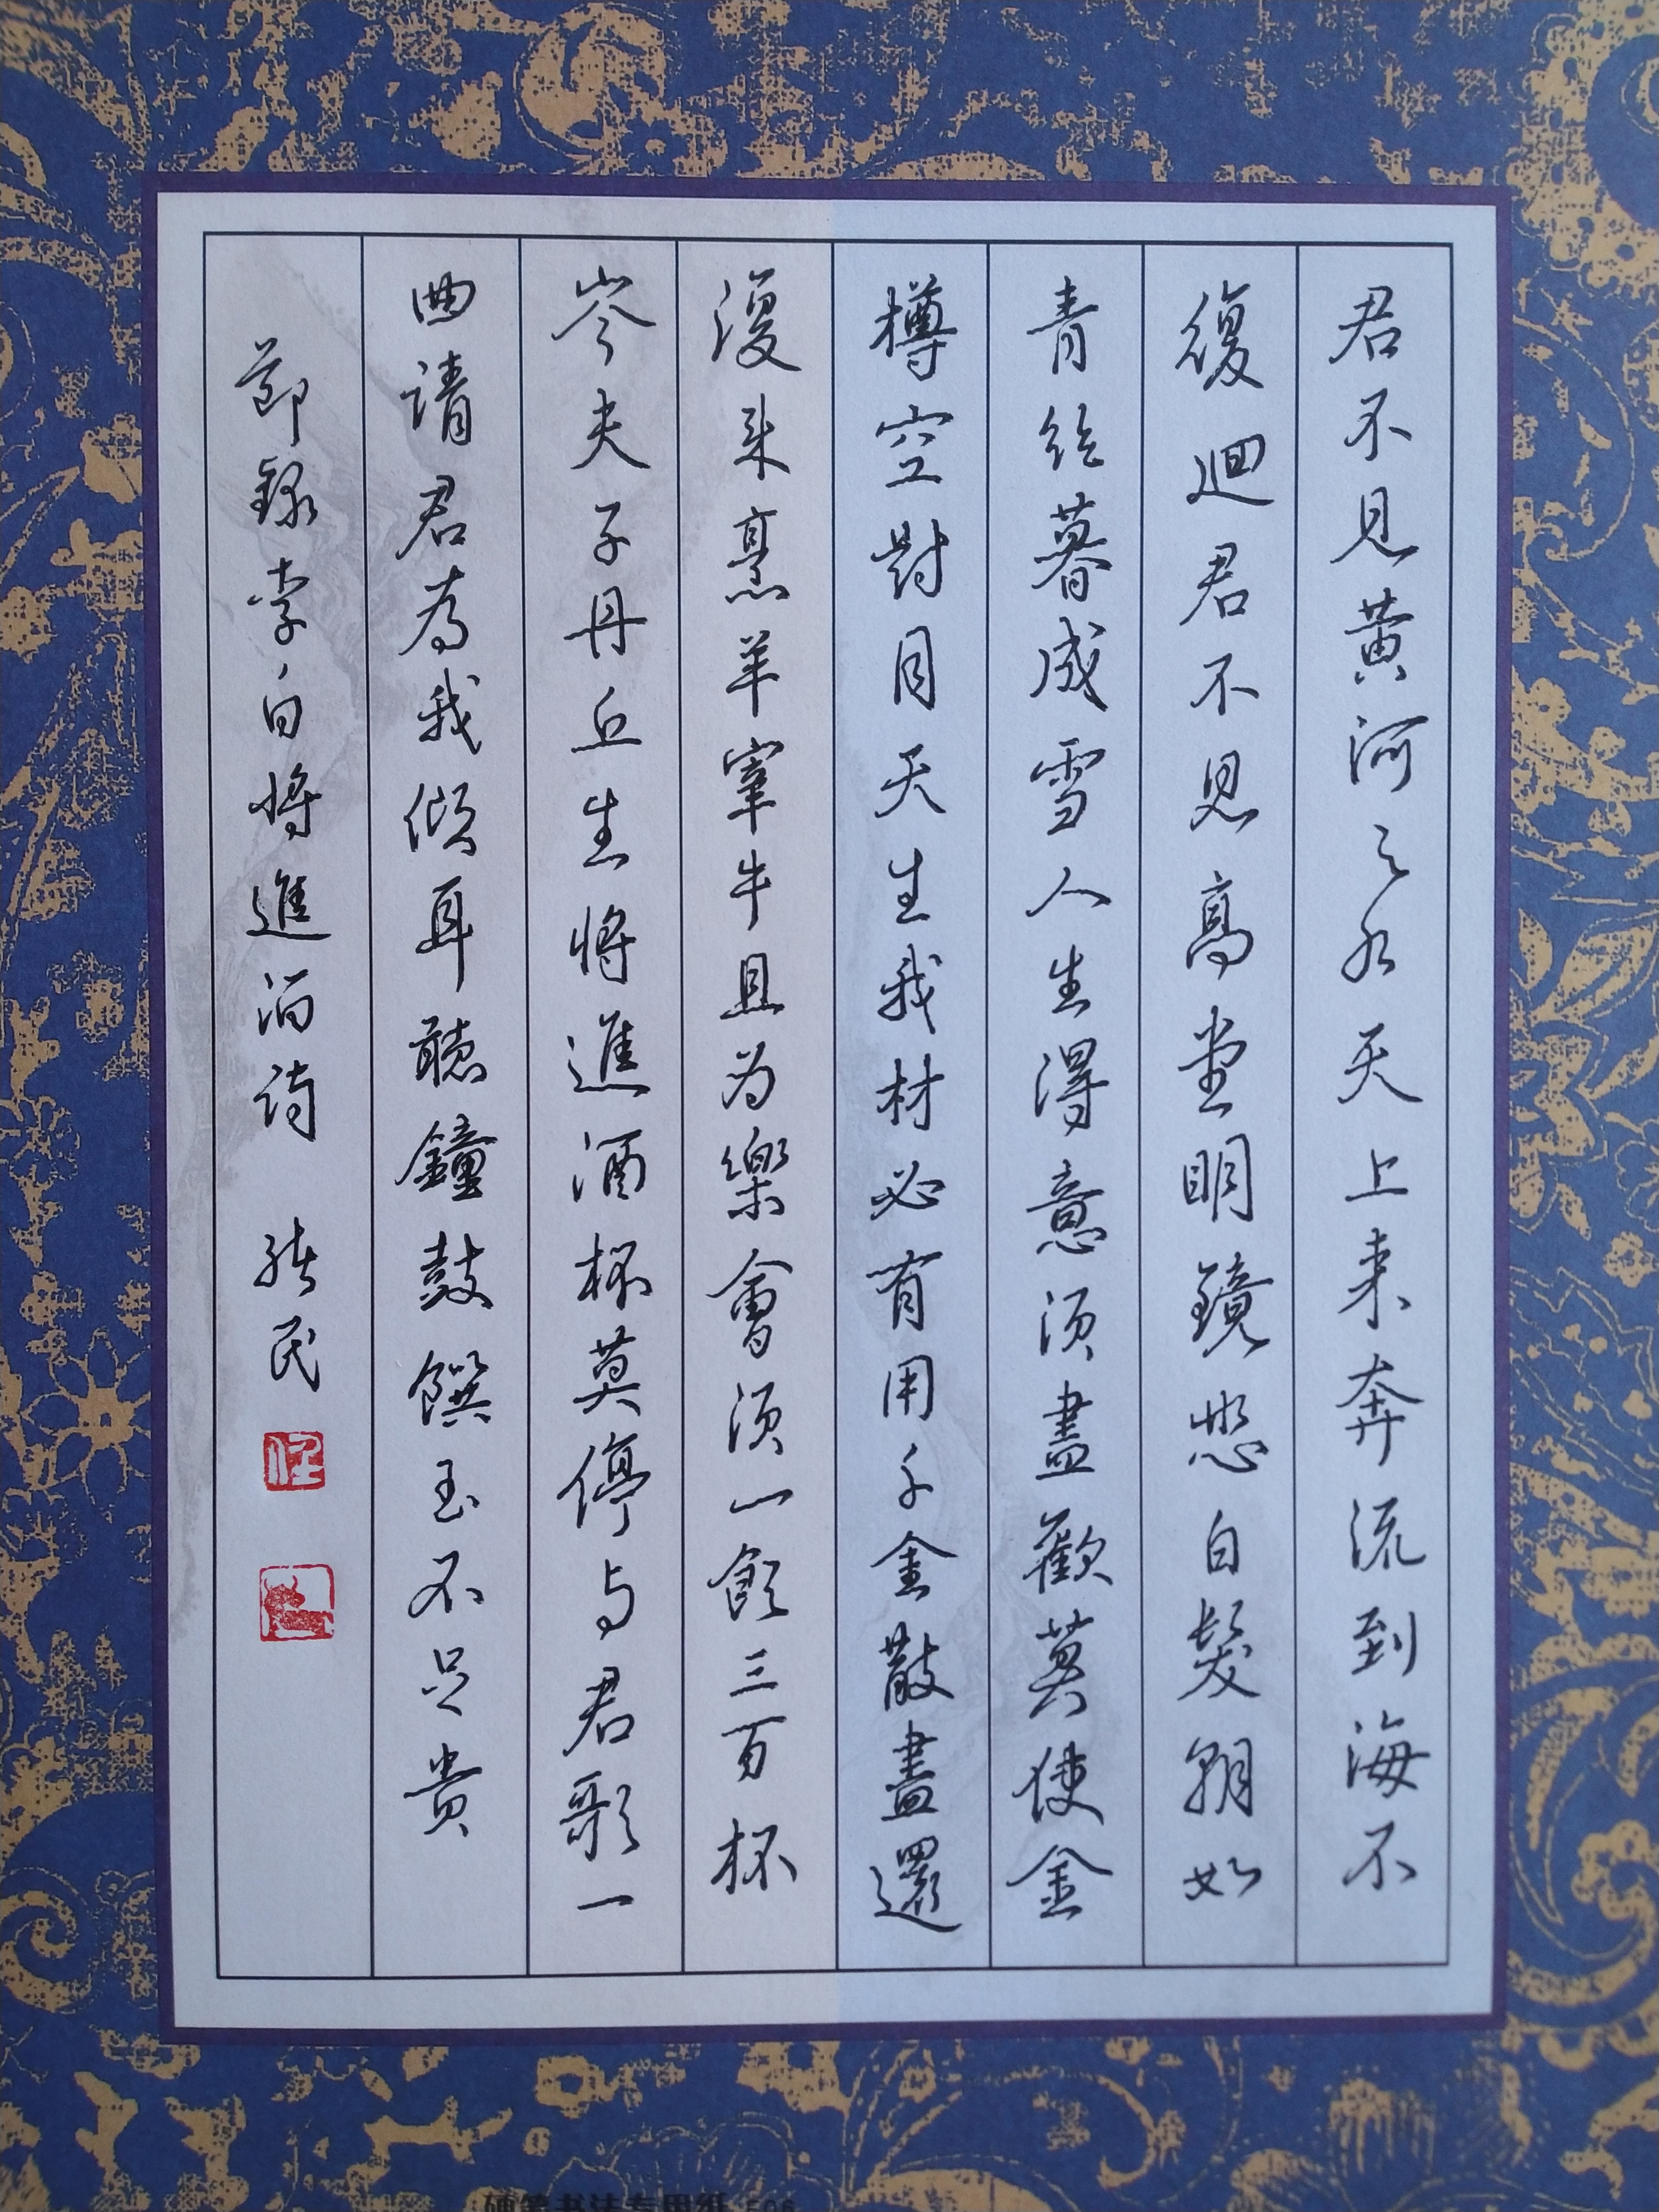 君不見黃河之水天上来奔流到海不
復迴君不見高堂明鏡悲白髮朝如
青丝暮成雪人生得意须盡歡莫使金
樽空對月天生我材必有用千金散盡還
復来烹羊宰牛且为樂會须一飲三百杯
岑夫子丹丘生將進酒杯莫停与君歌一
曲請君為我倾耳聽鐘鼓饌玉不足貴
節録李白將進酒诗 民
硬笔书法专用纸